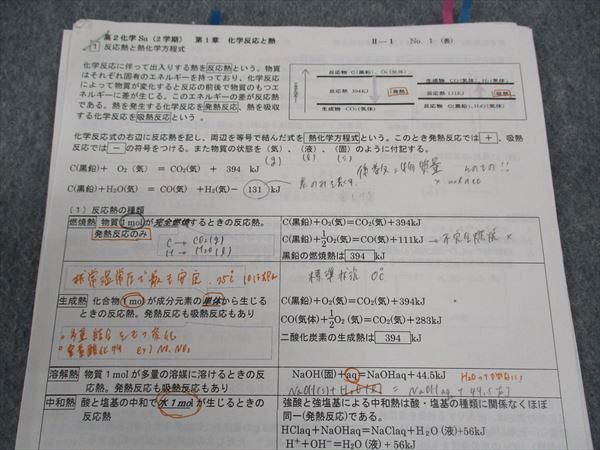 高2化学Sα(2学期) 第1章 化学反応と熱 Ⅱ―1 No. 1 (表)
1 反応熱と熱化学方程式
化学反応に伴って出入りする熱を反応熱という。物質
はそれぞれ固有のエネルギーを持っており、化学反応
によって物質が変化すると反応の前後で物質のもつエ
ネルギーに差が生じる。このエネルギーの差が反応熱
である。熱を発生する化学反応を発熱反応、熱を吸収
する化学反応を吸熱反応という。
反応物 C(黒鉛), O₂(気体)
反応熱 394kJ 発熱
生成物 CO₂(気体)
生成物 CO(気体), H₂(気体)
反応熱 131kJ 吸熱
反応物 C(黒鉛), H₂O(気体)
化学反応式の右辺に反応熱を記し、両辺を等号で結んだ式を 熱化学方程式 という。このとき発熱反応では + 、吸熱
反応では − の符号をつける。また物質の状態を(気)、(液)、(固)のように付記する。
(g) (l) (s)
C(黒鉛)+ O₂(気) = CO₂(気) + 394 kJ
C(黒鉛)+H₂O(気) = CO(気) +H₂(気)− 131 kJ
(1)反応熱の種類
燃焼熱 物質1molが完全燃焼するときの反応熱。
発熱反応のみ
C → CO₂(g)
H → H₂O(l)
C(黒鉛)+O₂(気)=CO₂(気)+394kJ
C(黒鉛)+1/2O₂(気)=CO(気)+111kJ → 不完全燃焼 ×
黒鉛の燃焼熱は 394 kJ
標準状態 0℃
生成熱 化合物1molが成分元素の単体から生じる
ときの反応熱。発熱反応も吸熱反応もあり
C(黒鉛)+O₂(気)=CO₂(気)+394kJ
CO(気体)+1/2O₂(気)=CO₂(気)+283kJ
二酸化炭素の生成熱は 394 kJ
溶解熱 物質1molが多量の溶媒に溶けるときの反
応熱。発熱反応も吸熱反応もあり
NaOH(固)+aq=NaOHaq+44.5kJ
中和熱 酸と塩基の中和で水1molが生じるときの
反応熱
強酸と強塩基による中和熱は酸・塩基の種類に関係なくほぼ
同一(発熱反応)である。
HClaq+NaOHaq=NaClaq+H₂O(液)+56kJ
H⁺+OH⁻=H₂O(液)+56kJ